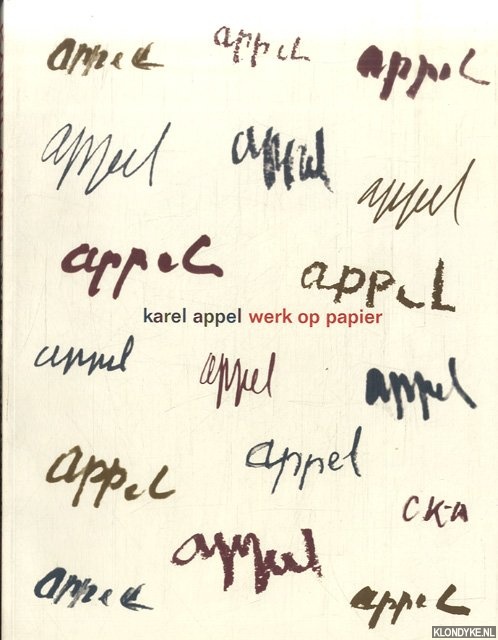 appel
appel
appel
appel
appel
appel
appel
appel
karel appel werk op papier
appel
appel
appel
appel
appel
CK-A
appel
appel
appel
KLONDYKE.NL